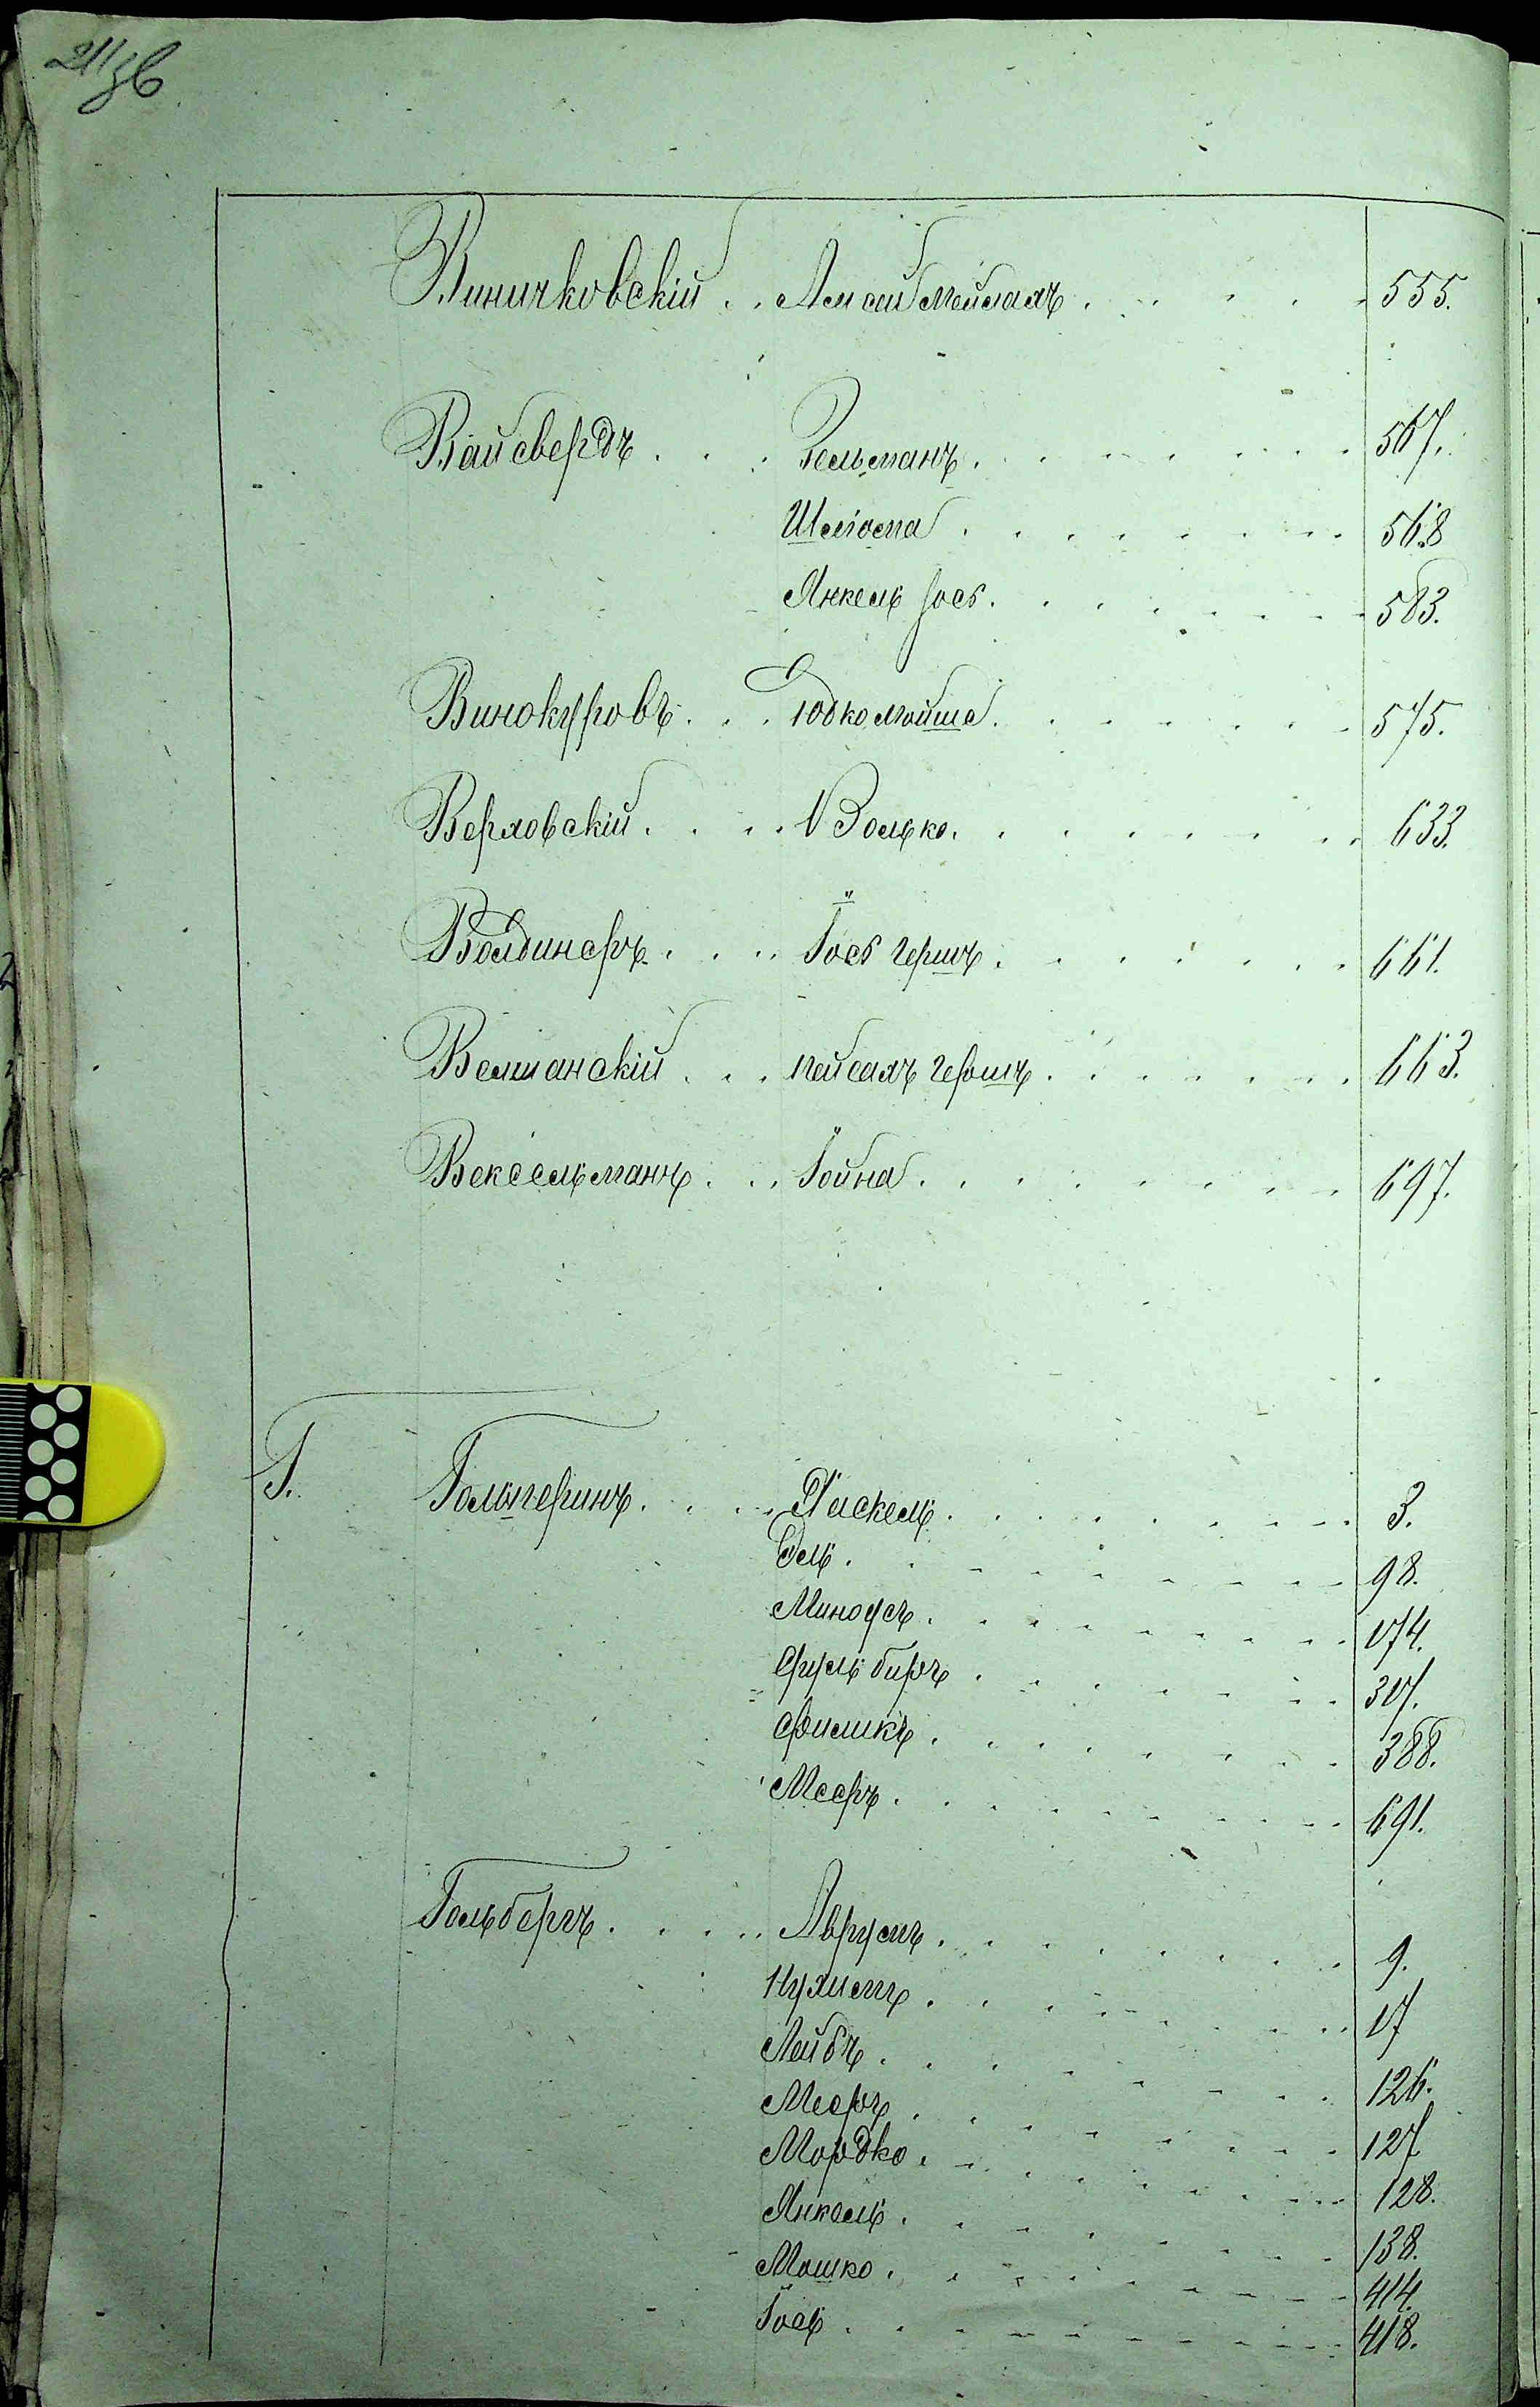 Виничковскій . . 555.
Вайсвердъ . . . Зельманъ . . . 567.
Шліома . . . 568
Янкель Іос. . . . 583.
Винокуровъ . . . Юдко Мойше . . . 575.
Верховскій . . . Волько . . . 633.
Волдинеръ . . . Іос Гершъ . . . 661.
Велшанскій . . . Пейсахъ Гершъ . . . 663.
Вексельманъ . . . Іойна . . . 697.
Г. Гальперинъ . . . Хаскель . . . 3.
Эль . . . 98.
Миноусъ . . . 174.
Сруль Биръ . . . 307.
Фишкъ . . . 388.
Мееръ . . . 691.
Гольбергъ . . . Аврумъ . . . 9.
Нухимъ . . . 17
Лейбъ . . . 126.
Мееръ . . . 127
Мордко . . . 128.
Янкель . . . 138.
Мошко . . . 414.
Іось . . . 418.